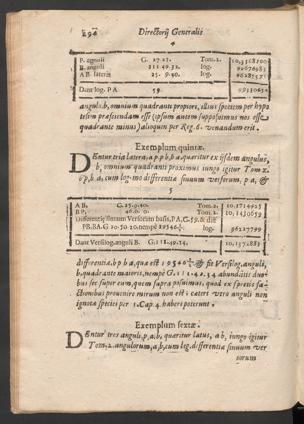 294 Directorij Generalis
4
P. agnoli G. 27.27. Tom.2. 10,3368100
B. anguli 111.49.32. log.
AB. lateris 25. 9.40. log. 96285571
Dant log. PA 59.
anguli b, omnium quadrante propiori, illius speciem per hypo
tesim præsciendam esse (ipsum autem supposuimus nos esse
quadrante minus) alioquin per Reg. 6. venandum erit.
Exemplum quintæ.
DEntur tria latera, a p, p b, b a, quæritur ex ijsdem angulus,
b, omnium quadranti proximus iungo igitur Tom 2.
b p, b a, cum log-mo differentiæ sinuum versorum, p a, &
5
AB, G. 25.9.40. Tom.2. 10,3714925
BP, 46.0.0. Tom.2. 10,1430659
Differentiæ sinuum Versorum basis, PA, G. 59.0. & dif
PB.BA G. 20.50.20. nempè log. 96227799
Dant Versilog. anguli B. G. 111.49.24. 10,1372883
differentiæ, b p b a, quæ est & fit Versilog. anguli,
b, quadrante maioris, nempè G. abundātis duo-
bus sec super eum, quem supra posuimus, quod ex spretis fra-
ctionibus prouenire mirum non est: cæteri verò anguli non
ignotæ speciei per 1. Cap 4. haberi poterunt.
Exemplum sextæ.
DEntur tres anguli, p, a, b, quæritur latus, a b, iungo igitur
Tom. 2. angulorum, a, b, cum log. differentiæ sinuum ver
sorum